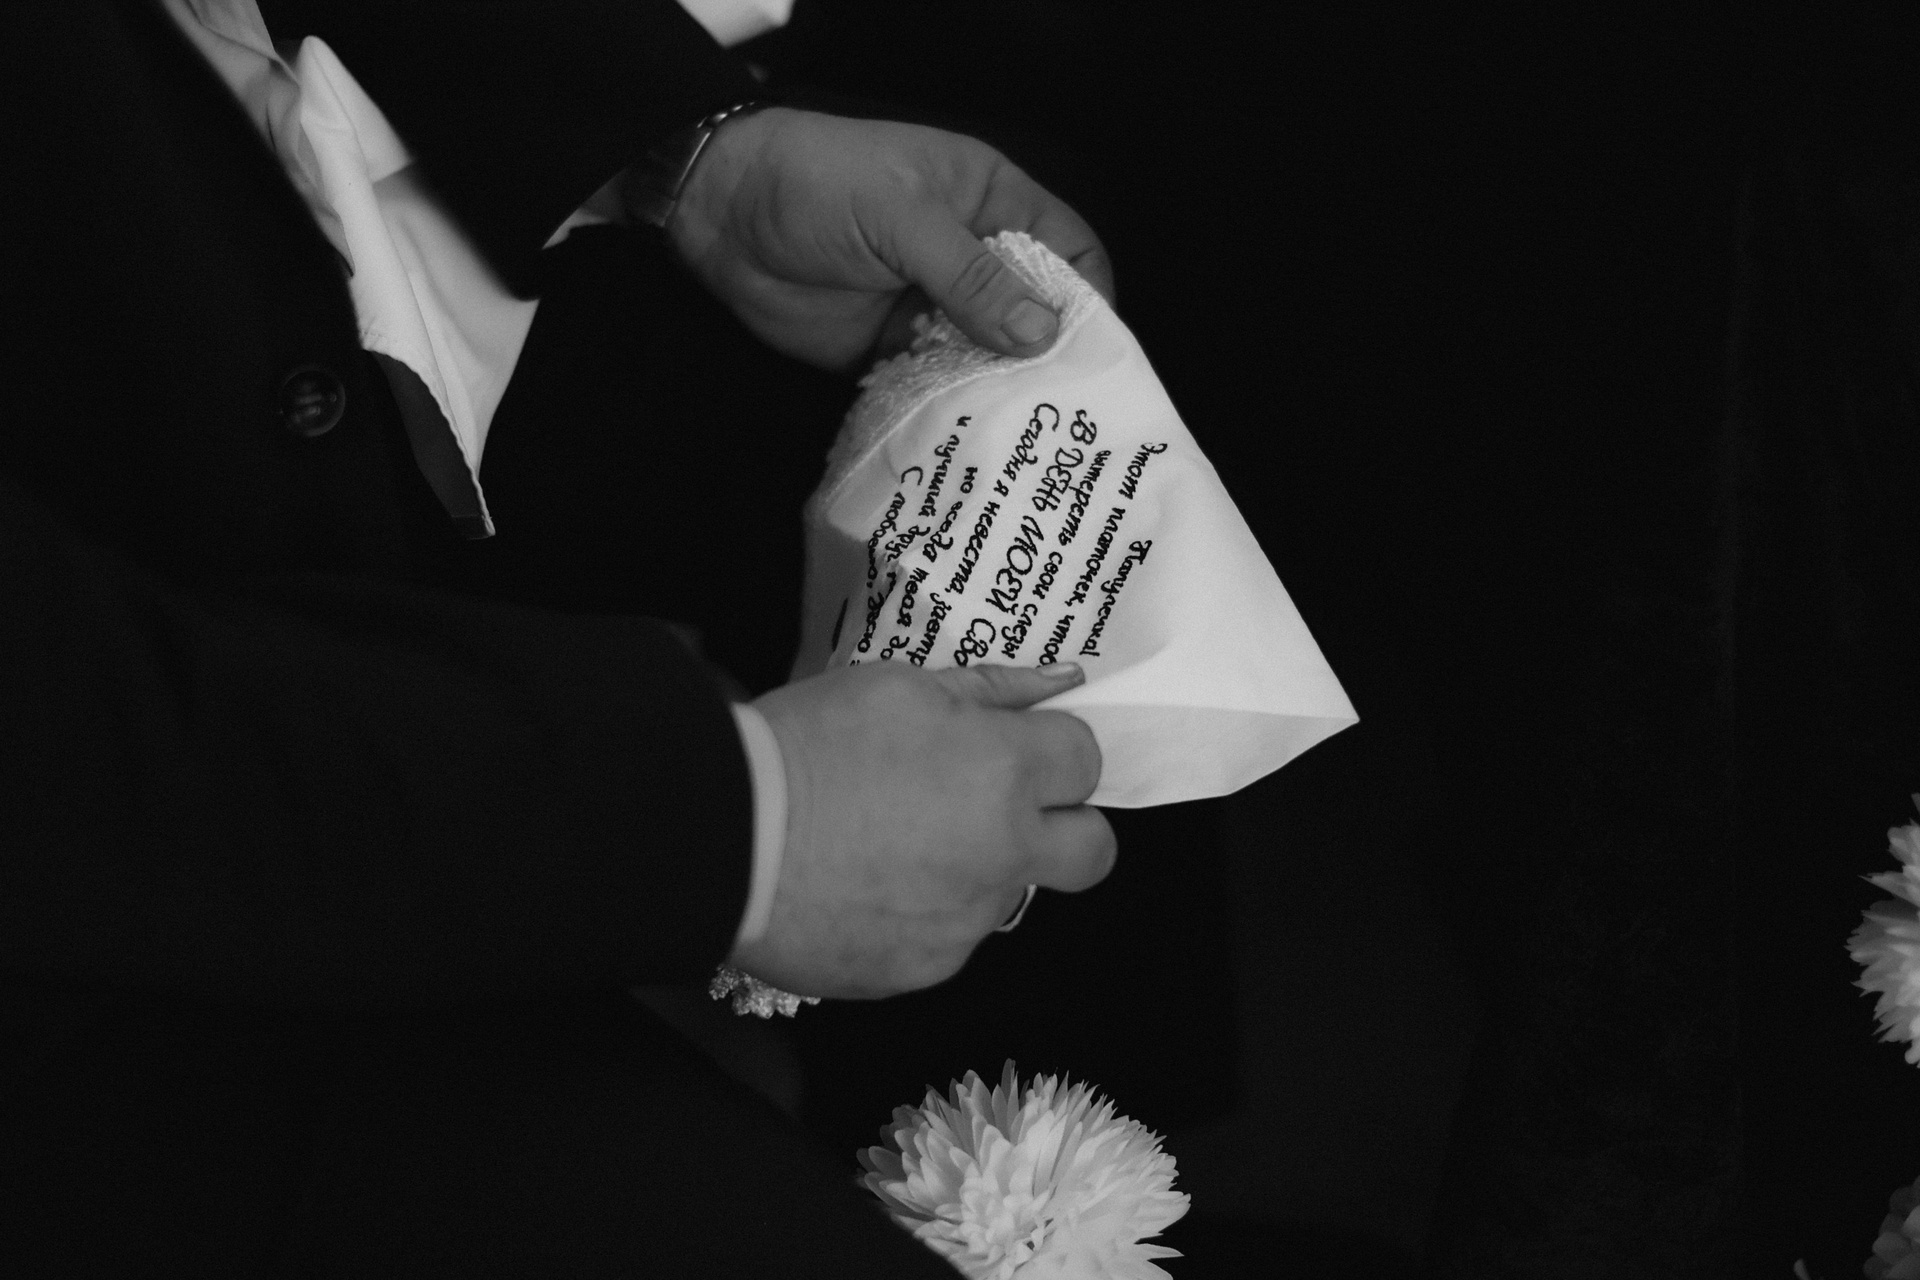 Папулечка!
Этот платочек, чтоб
вытереть свои слезы
В ДЕНЬ МОЕЙ СВ
Сегодня я невеста, завтр
но всегда твоя до
и лучший друг.
С любовью,